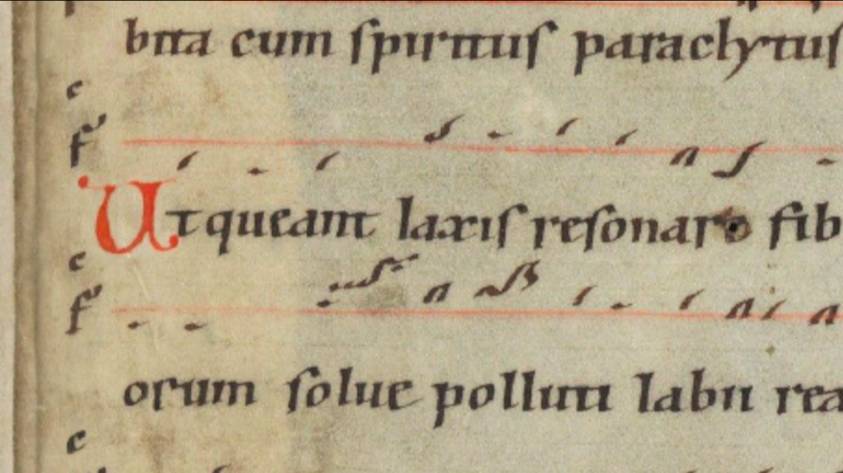 bita cum ſpirituſ paraclytuſ
c
f
Ut queant laxiſ reſonare fib
c
f
orum ſolue polluti labii rea
c